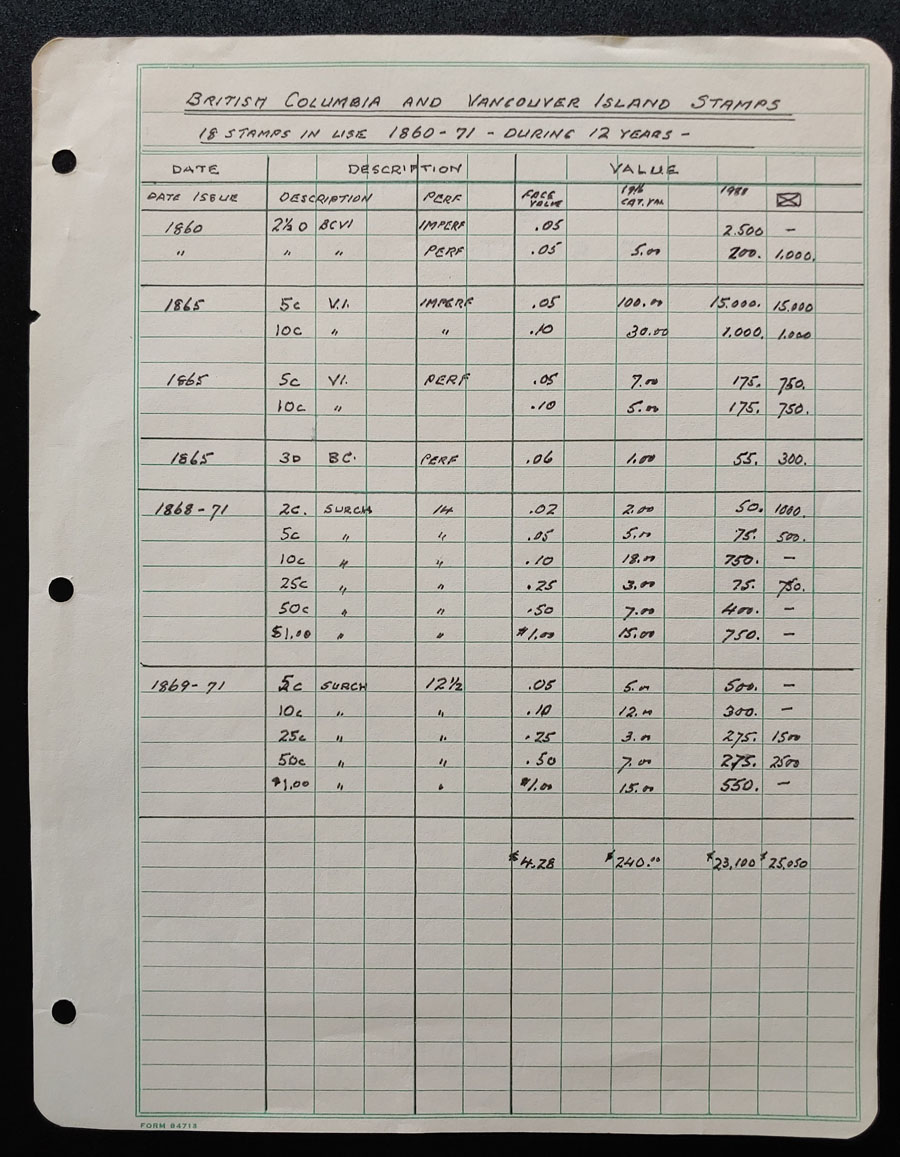 BRITISH COLUMBIA AND VANCOUVER ISLAND STAMPS
18 STAMPS IN USE 1860-71 - DURING 12 YEARS -
DATE DESCRIPTION VALUE
DATE ISSUE DESCRIPTION PERF FACE VALUE 1916 CAT. VAL 1988
1860 2½ D BCVI IMPERF .05 2.500 -
" " " PERF .05 5.00 200. 1,000.
1865 5c V.I. IMPERF .05 100.00 15.000. 15.000
10c " " .10 30.00 1.000. 1.000
1865 5c VI. PERF .05 7.00 175. 750.
10c " .10 5.00 175. 750.
1865 3D BC. PERF .06 1.00 55. 300.
1868-71 2c. SURCH 14 .02 2.00 50. 1000.
5c " " .05 5.00 75. 500.
10c " " .10 18.00 750. -
25c " " .25 3.00 75. 750.
50c " " .50 7.00 400. -
$1.00 " " $1.00 15.00 750. -
1869-71 5c SURCH 12½ .05 5.00 500. -
10c " " .10 12.00 300. -
25c " " .25 3.00 275. 1500
50c " " .50 7.00 275. 2500
$1.00 " " $1.00 15.00 550. -
$4.28 $240.00 $23,100 $25,050
FORM 84713